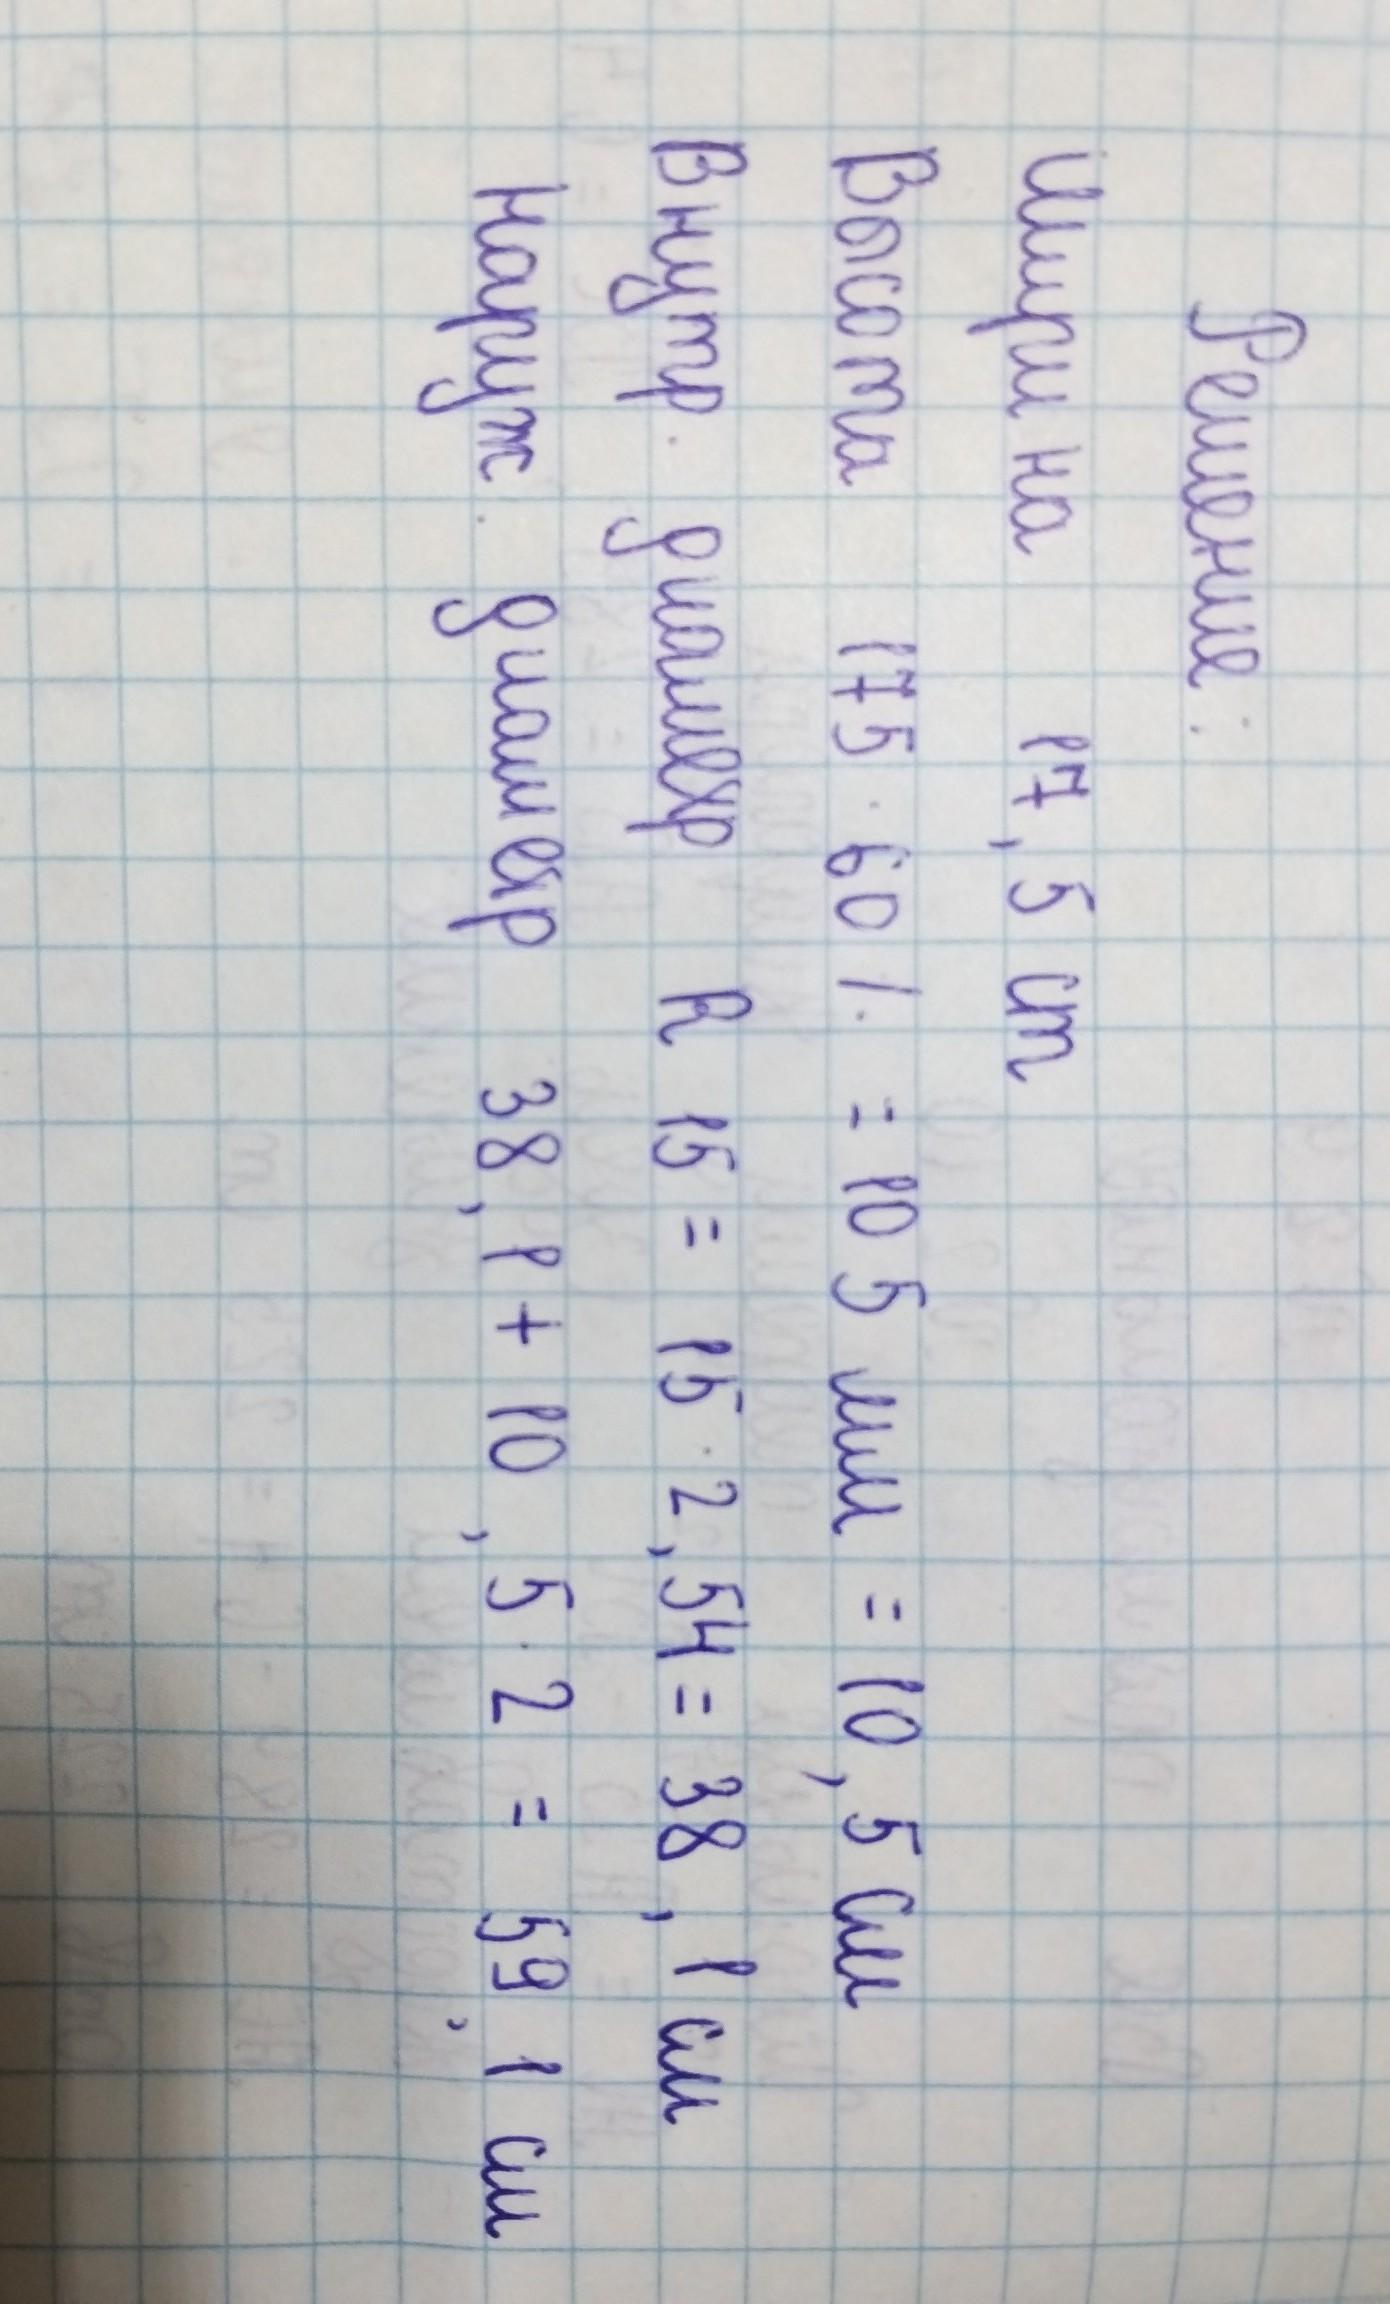 Решение:
Ширина 17,5 cm
Высота 175 · 60 % = 105 мм = 10,5 см
Внутр. диаметр R 15 = 15 · 2,54 = 38,1 см
Наруж. диаметр 38,1 + 10,5 · 2 = 59,1 см